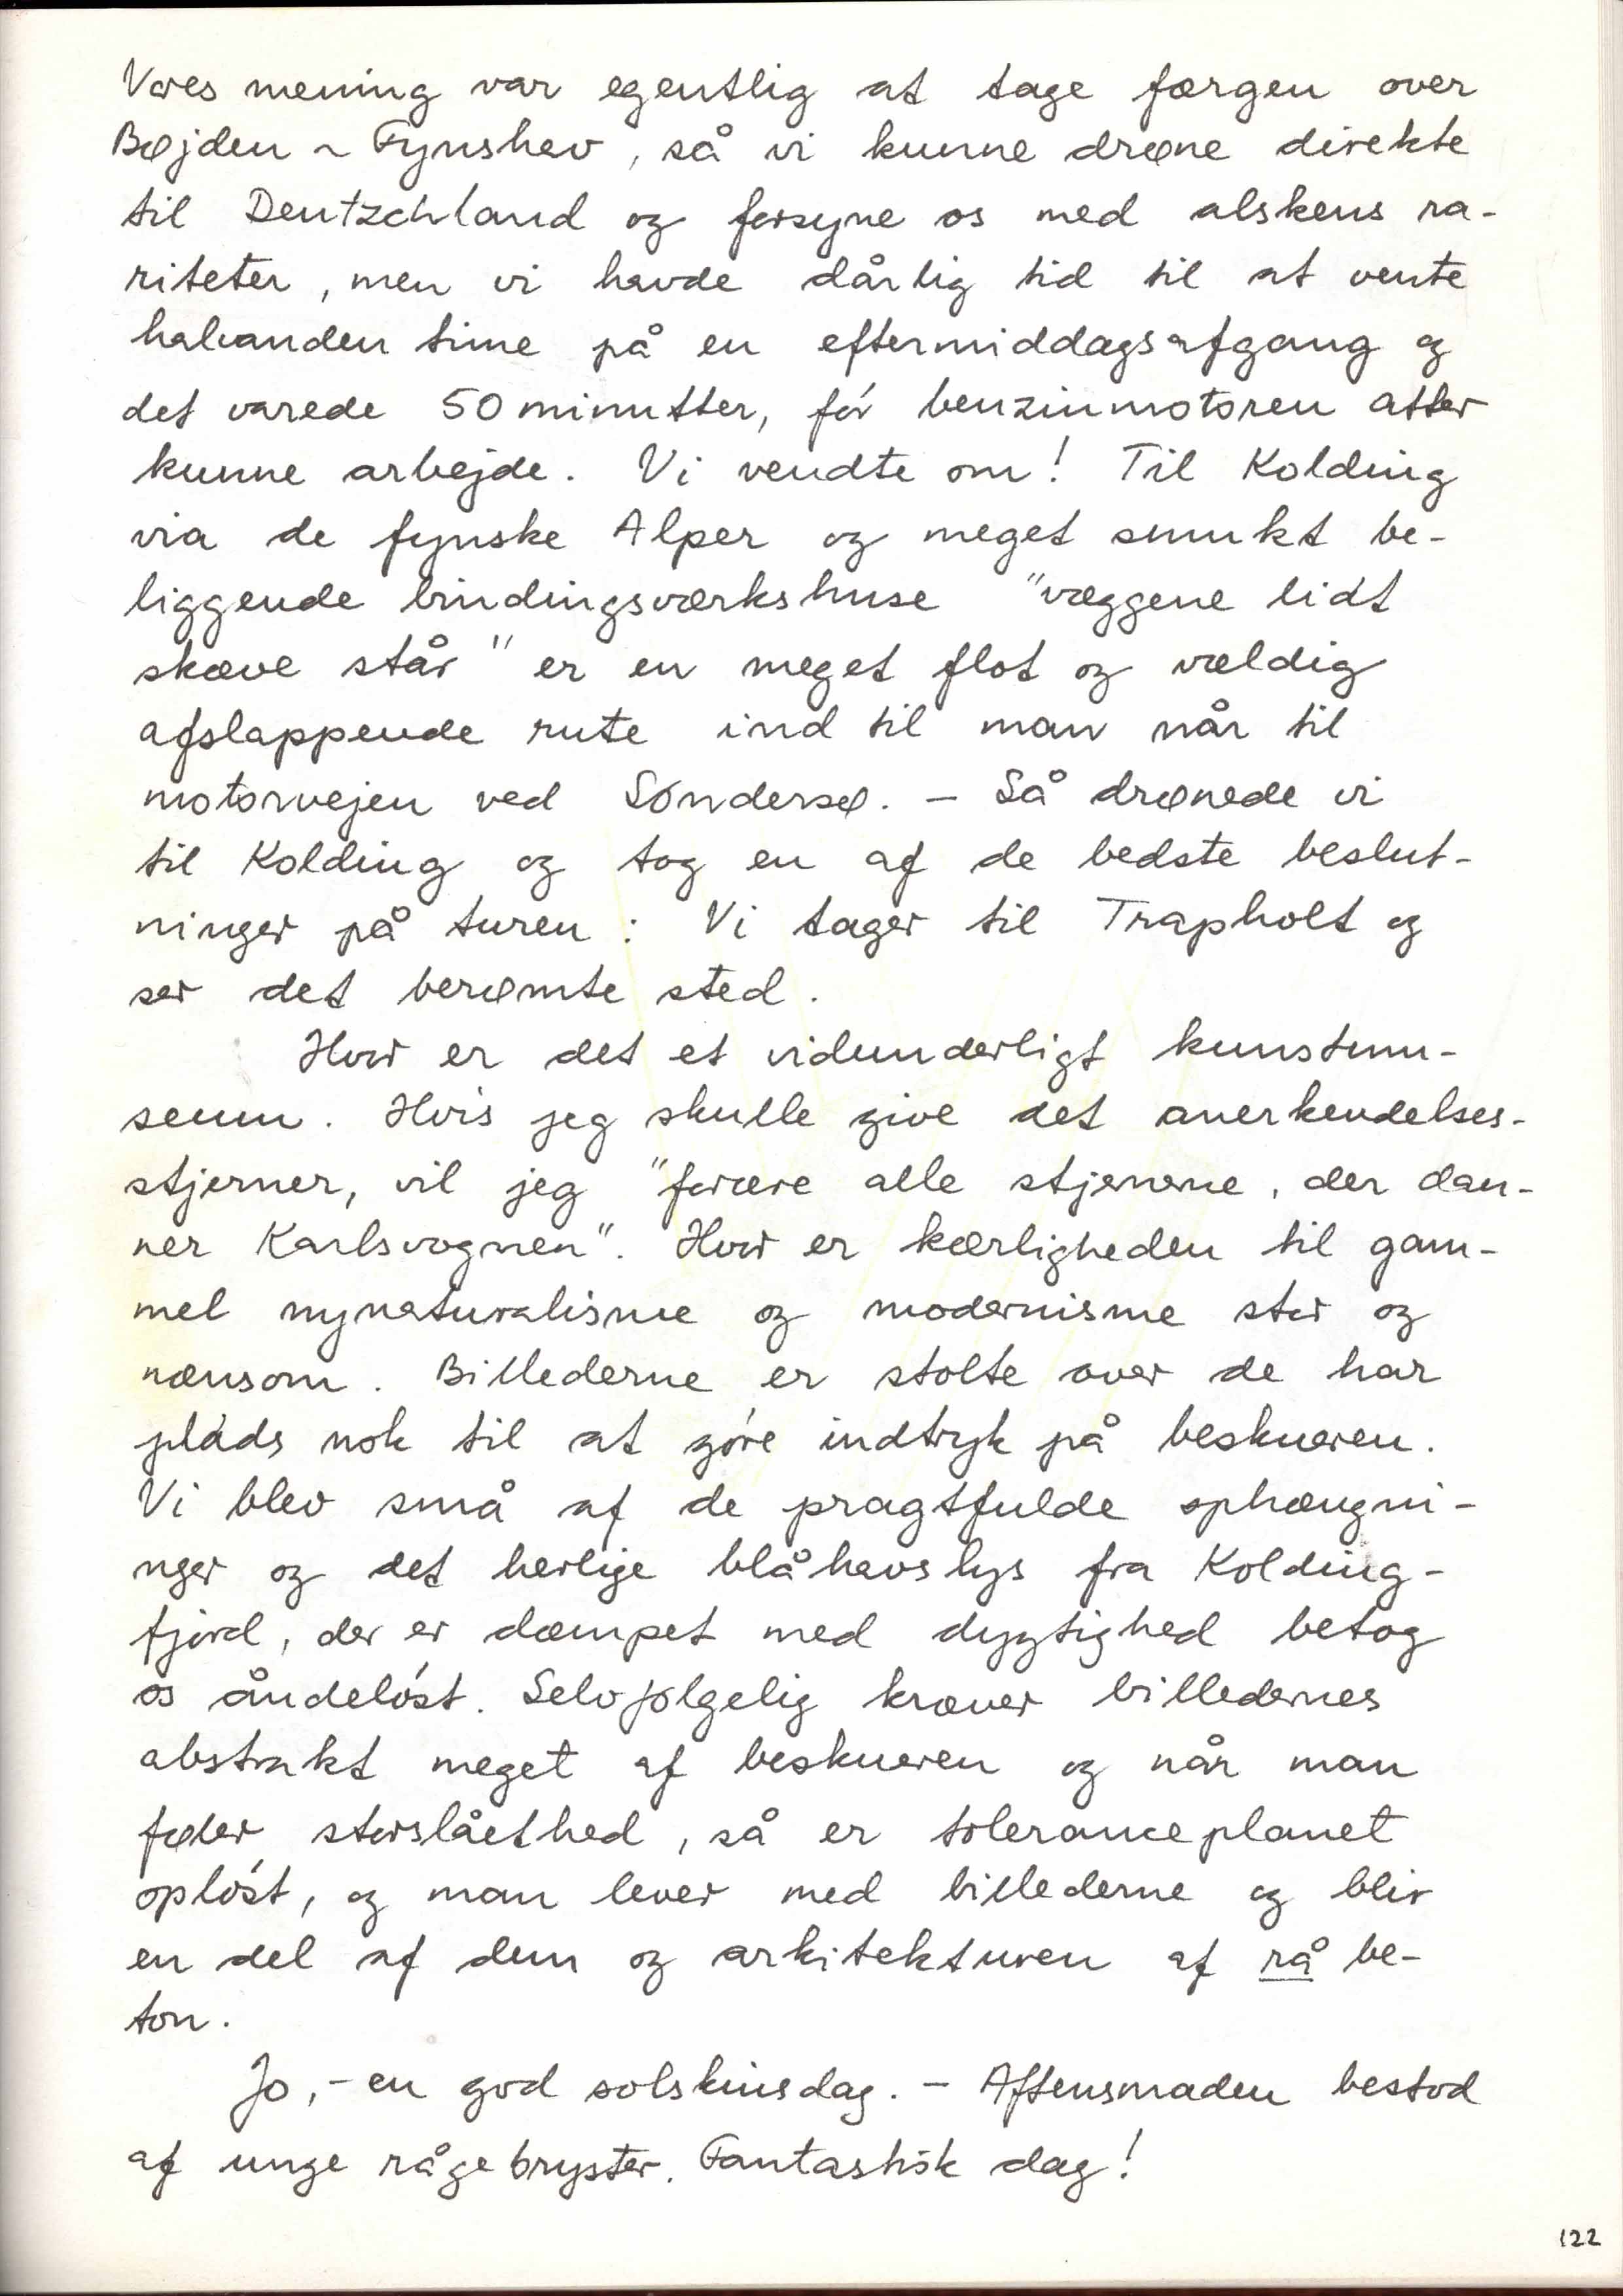 Vores mening var egentlig at tage færgen over
Bøjden ~ Fynshav, så vi kunne drøne direkte
til Deutzchland og forsyne os med alskens ra-
riteter, men vi havde dårlig tid til at vente
halvanden time på en eftermiddagsafgang og
det varede 50 minutter, før benzinmotoren atter
kunne arbejde. Vi vendte om! Til Kolding
via de fynske Alper og meget smukt be-
liggende bindingsværkshuse "væggene lidt
skæve står" er en meget flot og vældig
afslappende rute ind til man når til
motorvejen ved Søndersø. – Så drønede vi
til Kolding og tog en af de bedste beslut-
ninger på turen: Vi tager til Trapholt og
ser det berømte sted.
Hvor er det et vidunderligt kunstmu-
seum. Hvis jeg skulle give det anerkendelses-
stjerner, vil jeg "forære alle stjernerne, der dan-
ner Karlsvognen". Hvor er kærligheden til gam-
mel nynaturalisme og modernisme stor og
nænsom. Billederne er stolte over de har
plads nok til at gøre indtryk på beskueren.
Vi blev små af de pragtfulde ophængni-
nger og det herlige blå havslys fra Kolding-
fjord, der er dæmpet med dygtighed betog
os åndeløst. Selvfølgelig kræver billedernes
abstrakt meget af beskueren og når man
føler storslåethed, så er toleranceplanet
opløst, og man lever med billederne og bliv
en del af dem og arkitekturen af rå be-
ton.
Jo, - en god solskinsdag. – Aftensmaden bestod
af unge rågebryster. Fantastisk dag!
122